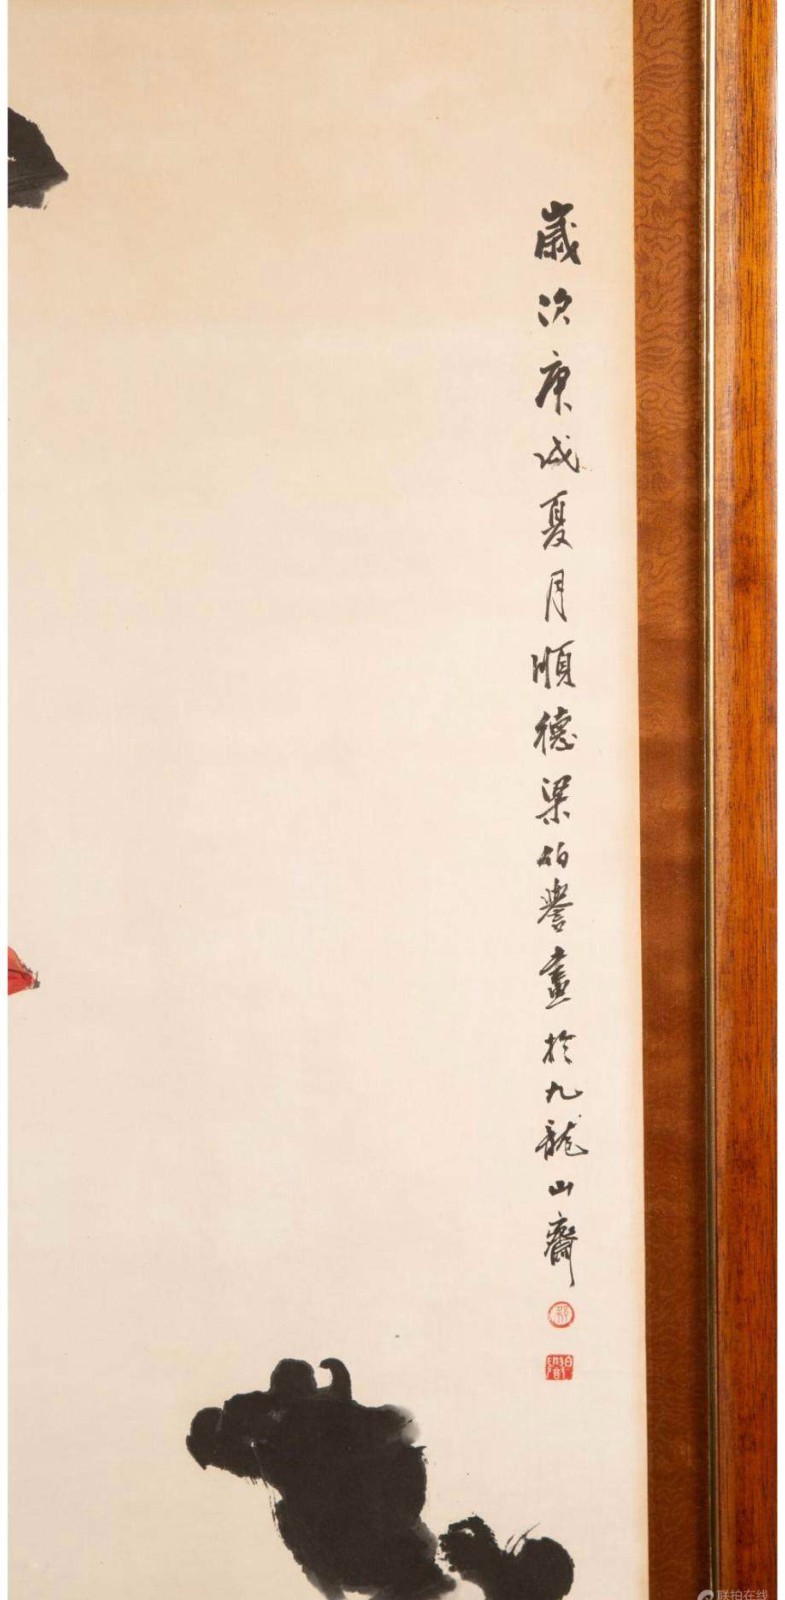 歲次庚戌夏月順德梁伯譽畫於九龍山齋
聯拍在线